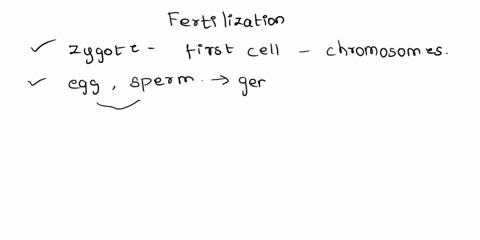 Fertilization
✓ zygote - first cell - chromosomes.
✓ egg, sperm → ger